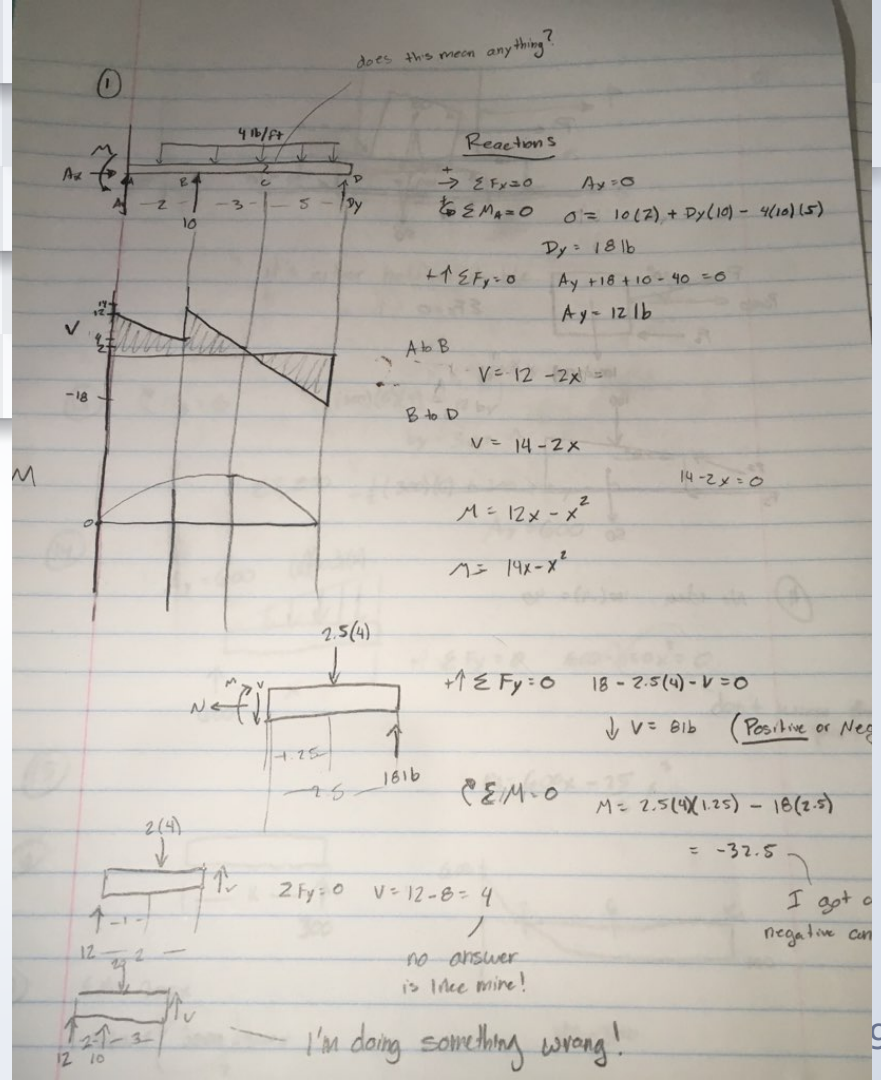 does this mean anything?
①
4 lb/ft
M
Ax
A B C D
Ay - 2 - - 3 - 5 - Dy
10
Reactions
+→ ΣFx=0 Ax=0
ΣMA=0 0 = 10(2) + Dy(10) - 4(10)(5)
Dy = 18 lb
+↑ ΣFy=0 Ay +18 +10 - 40 = 0
Ay = 12 lb
V
-18
A to B
V= 12 -2x =
B to D
V= 14-2x
14-2x=0
M
0
M = 12x - x²
M = 14x-x²
2.5(4)
N ← M V
1.25
2.5
18lb
+↑ Σ Fy=0 18 - 2.5(4) - V = 0
↓ V= 8lb (Positive or Neg
ΣM=0 M= 2.5(4)(1.25) - 18(2.5)
= -32.5
I got a
negative
2(4)
V
-1-
12 - 2 -
ΣFy=0 V= 12-8= 4
no answer
is like mine!
V
2 - 3 -
12 10
I'm doing something wrong!